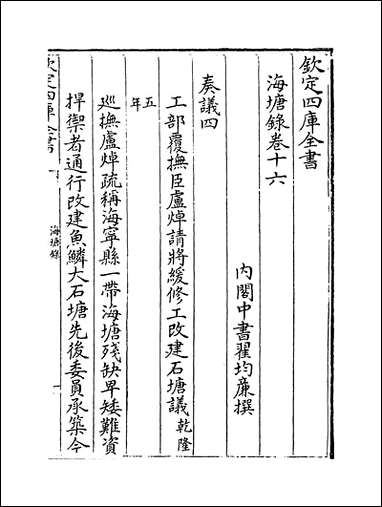 欽定四庫全書
海塘錄卷十六
內閣中書翟均廉撰
奏議四
工部覆撫臣盧焯請將緩修工改建石塘議乾隆
五年
巡撫盧焯疏稱海寧縣一帶海塘殘缺卑矮難資
捍禦者通行改建魚鱗大石塘先後委員承築今
欽定四庫全書
海塘錄
一